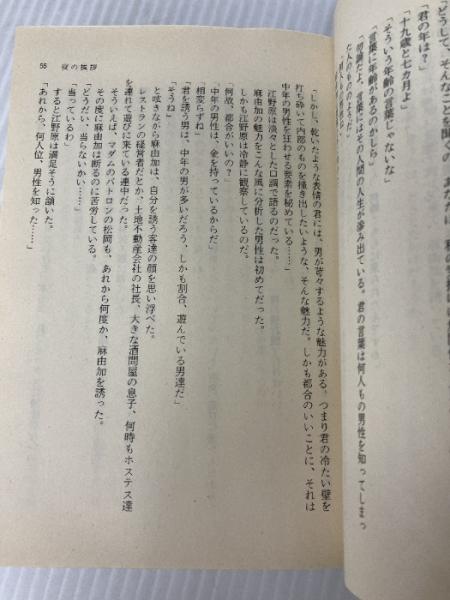 「どうして、そんなことを聞くの、あなたに
「君の年は？」
「十九歳と七カ月よ」
「そういう年齢の言葉じゃないな」
「言葉に年齢があるのかしら」
「勿論だよ。言葉にはその人間の人生が滲み出ている。君の言葉は何人もの男性を知ってしまっ
55 夜の挨拶
「しかし、乾いたような表情の君には、男が苛々するような魅力がある。つまり君の冷たい壁を
打ち砕いて内部のものを掻き出したいような、そんな魅力だ。しかも都合のいいことに、それは
中年の男性を狂わせる要素を秘めている……」
江野原は淡々とした口調で語るのだった。
麻由加の魅力をこんな風に分析した男性は初めてだった。
しかも江野原は冷静に観察しているのだ。
「何故、都合がいいの？」
「中年の男性は、金を持っているからだ」
「相変らずね」
「君を誘う男は、中年の男が多いだろう、しかも割合、遊んでいる男達だ」
「そうね」
と呟きながら麻由加は、自分を誘う客達の顔を思い浮べた。
レストランの経営者だとか、土地不動産会社の社長、大きな酒問屋の息子、何時もホステス達
を連れて遊びに来ている連中だった。
そういえば、マダムのパトロンの松岡も、あれから何度か、麻由加を誘った。
その度に麻由加は断るのに苦労している。
「どうだい、当らないかい……」
「当っているわ」
すると江野原は満足そうに頷いた。
「あれから、何人位、男性を知った……」